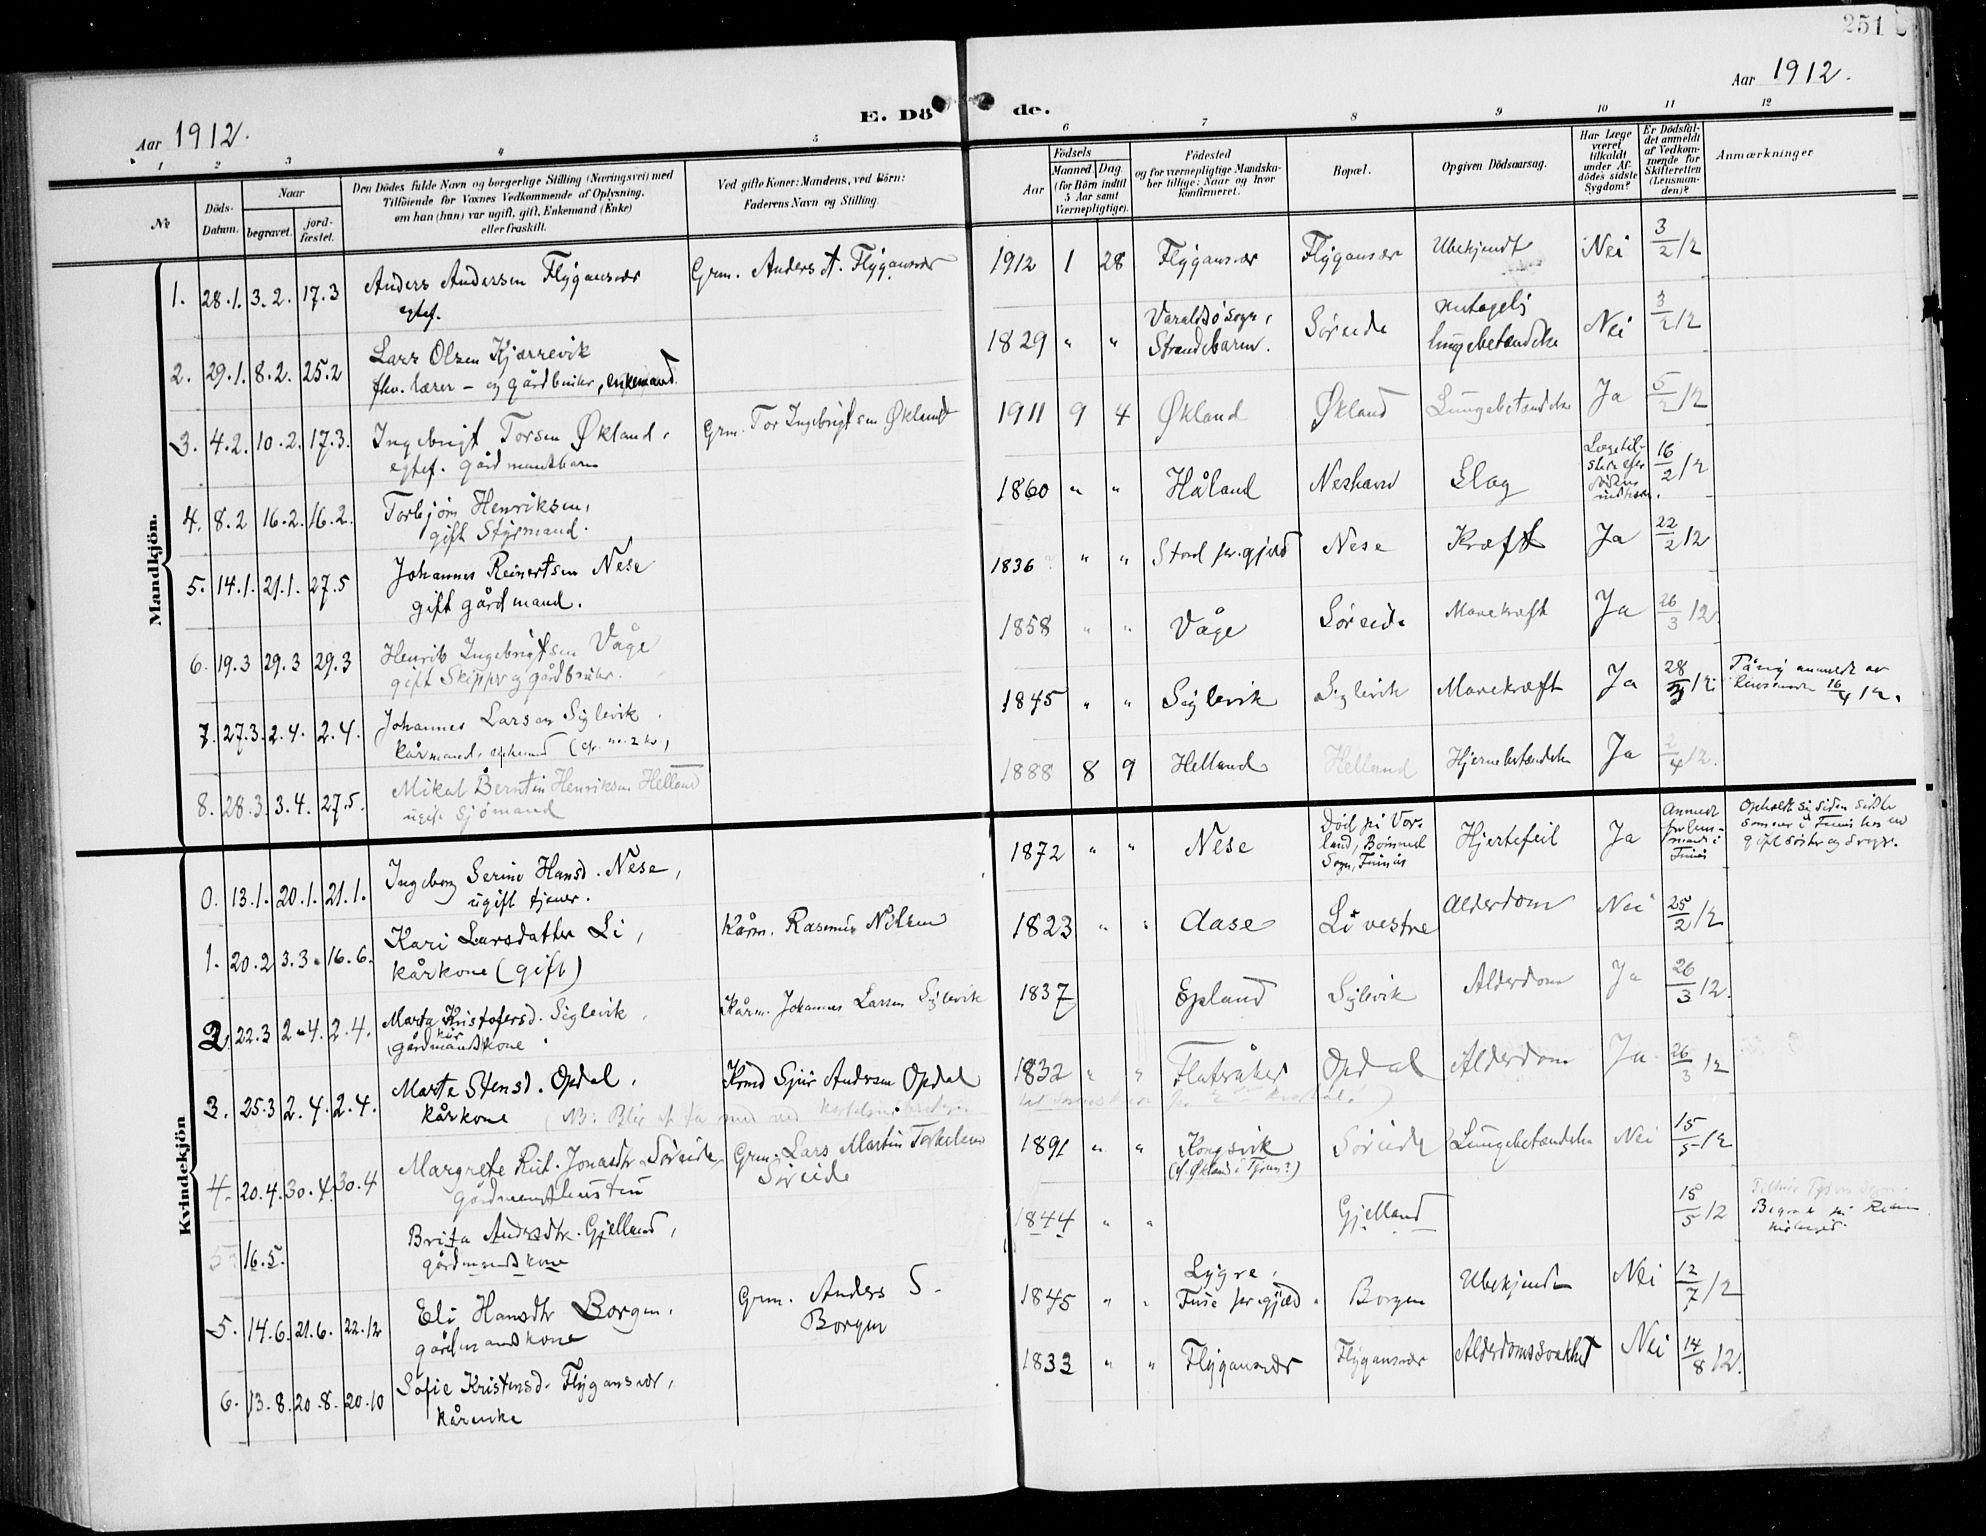 251
Aar 1912.
E. Dö de.
Aar 1912.
1 2 3 4 5 6 7 8 9 10 11 12
№
Döds-Datum.
Naar
begravet.
jord-fæstet.
Den Dödes fulde Navn og borgerlige Stilling (Næringsvei) med
Tilföiende for Voxnes Vedkommende af Oplysning.
om han (hun) var ugift, gift, Enkemand (Enke)
eller fraskilt.
Ved gifte Koner: Mandens, ved Börn:
Faderens Navn og Stilling.
Födsels
Aar
Maaned. Dag.
(for Börn indtil
5 Aar samt
Værnepligtige).
Födested
og for værnepligtige Mandska-
ber tillige: Naar og hvor
konfirmeret.
Bopæl.
Opgiven Dödsaarsag.
Har Læge
været
tilkaldt
under Af-
dödes sidste
Sygdom?
Er Dödsfal-
det anmeldt
af Vedkom-
mende for
Skifteretten
(Lensman-
den)?
Anmærkninger
Mandkjön.
1. 28.1. 3.2. 17.3 Anders Andersen Flygansvær
egtef.
Grm. Anders A. Flygansvær
1912 1 28 Flygansvær Flygansvær Ubekjendt Nei 3/2 12
2. 29.1. 8.2. 25.2 Lars Olsen Kjærrevik
fhv. lærer - og gårdbruker, enkemand.
1829 " " Varaldsö sogn,
Strandebarm. Søreide Antagelig
lungebetændelse Nei 3/2 12
3. 4.2. 10.2. 17.3. Ingebrigt Torsen Økland,
egtef. gårdmandsbarn
Grm. Tor Ingebrigtsen Økland
1911 9 4 Økland Økland Lungebetændelse Ja 5/2 12
4. 8.2 16.2. 16.2. Torbjørn Henriksen,
gift Styrmand.
1860 " " Håland Neshavn Slag 16/2 12
5. 14.1. 21.1. 27.5 Johannes Reinertsen Nese
gift gårdmand.
1836 " " Stord pr.gjeld Nese Kræft Ja 22/2 12
6. 19.3 29.3 29.3 Henrik Ingebrigtsen Våge
gift Skipper og gårdbruker.
1858 " " Våge Søreide Mavekræft Ja 26/3 12
7. 27.3. 2.4. 2.4. Johannes Larsen Siglevik
kårmand, enkemand (cfr. nr. 2 kv.)
1845 " " Siglevik Siglevik Mavekræft Ja 28/3 12. 16/4 12.
8. 28.3. 3.4. 27.5. Mikal Berntin Henriksen Helland
ugift Sjømand
1888 8 9 Helland Helland Hjernebetændelse Ja 2/4 12.
Kvindekjön
0. 13.1. 20.1. 21.1. Ingeborg Serine Hansd. Nese,
ugift tjener.
1872 " " Nese Död på Vor-
land, Bømmel
Sogn, Finnås Hjertefeil Ja Anmeldt
for lens-
mand i
Finnås
Opholdt sig siden sidste
sommer i Finnås hos en
gift søster og svoger.
1. 20.2 3.3. 16.6. Kari Larsdatter Li,
kårkone (gift)
Kårm. Rasmus Nilsen
1823 " " Aase Li vestre Alderdom Nei 25/2 12
2. 22.3 2.4. 2.4. Marta Kristofersd. Siglevik,
kår
gårdmandskone
Kårm. Johannes Larsen Siglevik
1837 Epland Siglevik Alderdom Ja 26/3 12.
3. 25.3 2.4. 2.4. Marta Stensd. Opdal,
kårkone (NB: Blir at ta med ved
Kmd Sjur Andersen Opdal
1832 " " Flatråker Opdal Alderdom Ja 26/3 12
4. 20.4. 30.4. 30.4 Margrete Jonasdtr. Søreide
gårdmandshustru
Grm. Lars Martin Torkelsen
Søreide
1891 " " Kongsvik
(el. Økland i Tysnes?) Søreide Lungebetændelse Nei 15/5 12
5 16.5. Brita Andersdtr. Gjelland,
gårdmandskone
1844 " " Gjelland 15/5 12
5. 14.6. 21.6. 22.12 Eli Hansdtr Borgen,
gårdmandskone
Grm. Anders S.
Borgen
1845 " " Lygre,
Fuse pr.gjeld. Borgen Ubekjendt Nei 12/7 12
6. 13.8. 20.8. 20.10 Sofie Kristensd. Flygansvær,
kårenke
1833 " " Flygansvær Flygansvær Alderdomssvakhet Nei 14/8 12.